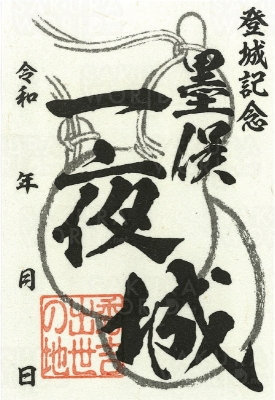 登城記念
墨俣
一夜城
令和 年 月 日
秀吉
出世
の地